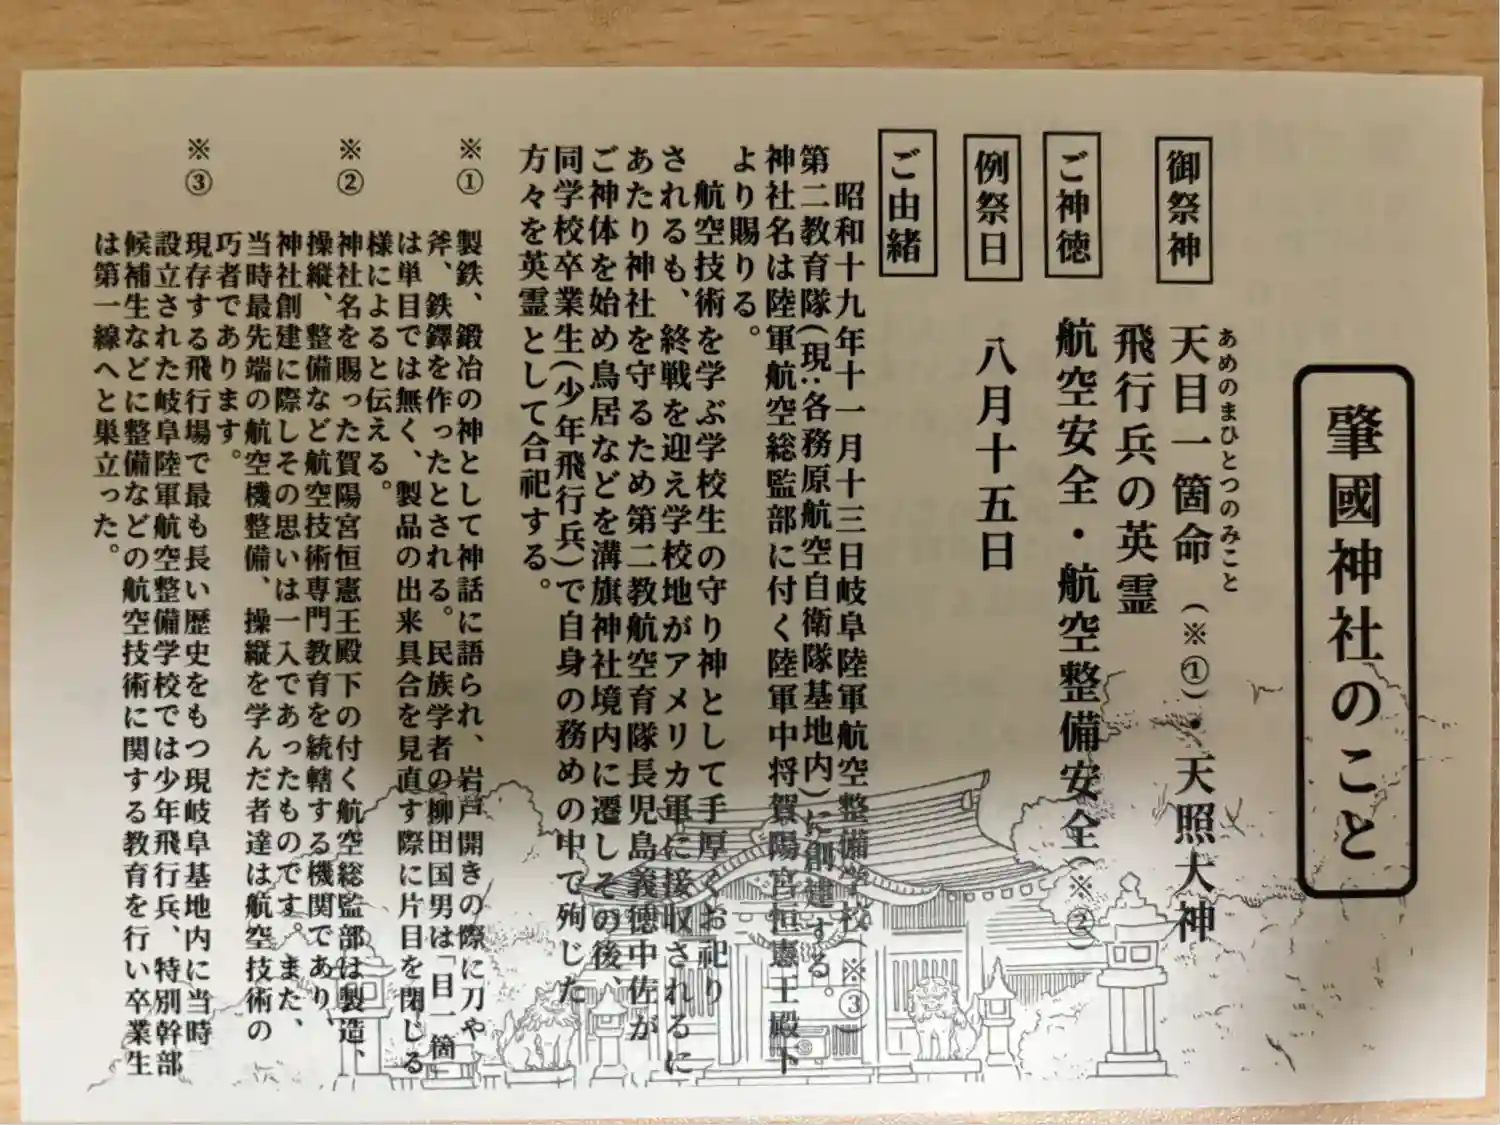 肇國神社のこと
御祭神
あめのまひとつのみこと
天目一箇命(※①)・天照大神
飛行兵の英霊
ご神徳
航空安全・航空整備安全(※②)
例祭日
八月十五日
ご由緒
昭和十九年十一月十三日岐阜陸軍航空整備学校(※③)
第二教育隊(現:各務原航空自衛隊基地内)に創建する。
神社名は陸軍航空総監部に付く陸軍中将賀陽宮恒憲王殿下
より賜りる。
航空技術を学ぶ学校生の守り神として手厚くお祀り
されるも、終戦を迎え学校地がアメリカ軍に接収されるに
あたり神社を守るため第二教航空育隊長児島義徳中佐が
ご神体を始め鳥居などを溝旗神社境内に遷しその後、
同学校卒業生(少年飛行兵)で自身の務めの中で殉じた
方々を英霊として合祀する。
※① 製鉄、鍛冶の神として神話に語られ、岩戸開きの際に刀や
斧、鉄鐸を作ったとされる。民族学者の柳田国男は「目一箇」
は単目では無く、製品の出来具合を見直す際に片目を閉じる
様によると伝える。
※② 神社名を賜った賀陽宮恒憲王殿下の付く航空総監部は製造、
操縦、整備など航空技術専門教育を統轄する機関であり、
神社創建に際しその思いは一入であったものです。また、
当時最先端の航空機整備、操縦を学んだ者達は航空技術の
巧者であります。
※③ 現存する飛行場で最も長い歴史をもつ現岐阜基地内に当時
設立された岐阜陸軍航空整備学校では少年飛行兵、特別幹部
候補生などに整備などの航空技術に関する教育を行い卒業生
は第一線へと巣立った。